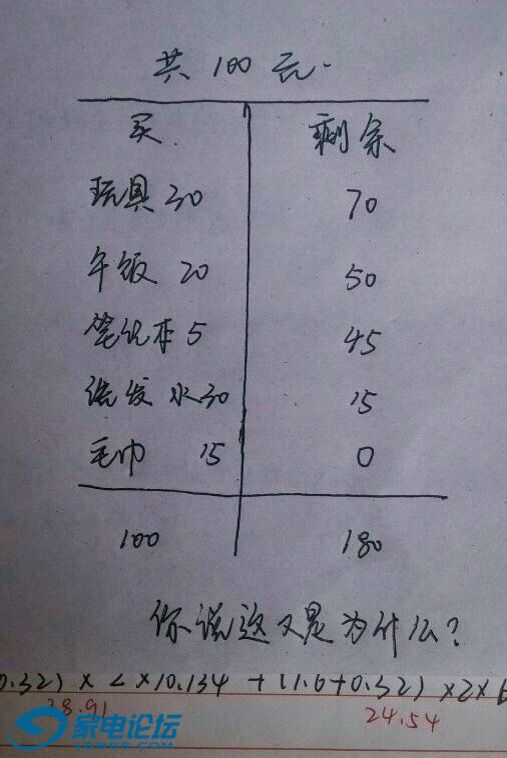 共 100 元.
买. 剩余
玩具 30 70
午饭 20 50
笔记本 5 45
洗发水 30 15
毛巾 15 0
100 180
你说这又是为什么?
0.32) × 2 × 10.134 + (1.6+0.32) × 2 × 6
28.91 24.54
家电论坛
JDBBS.COM